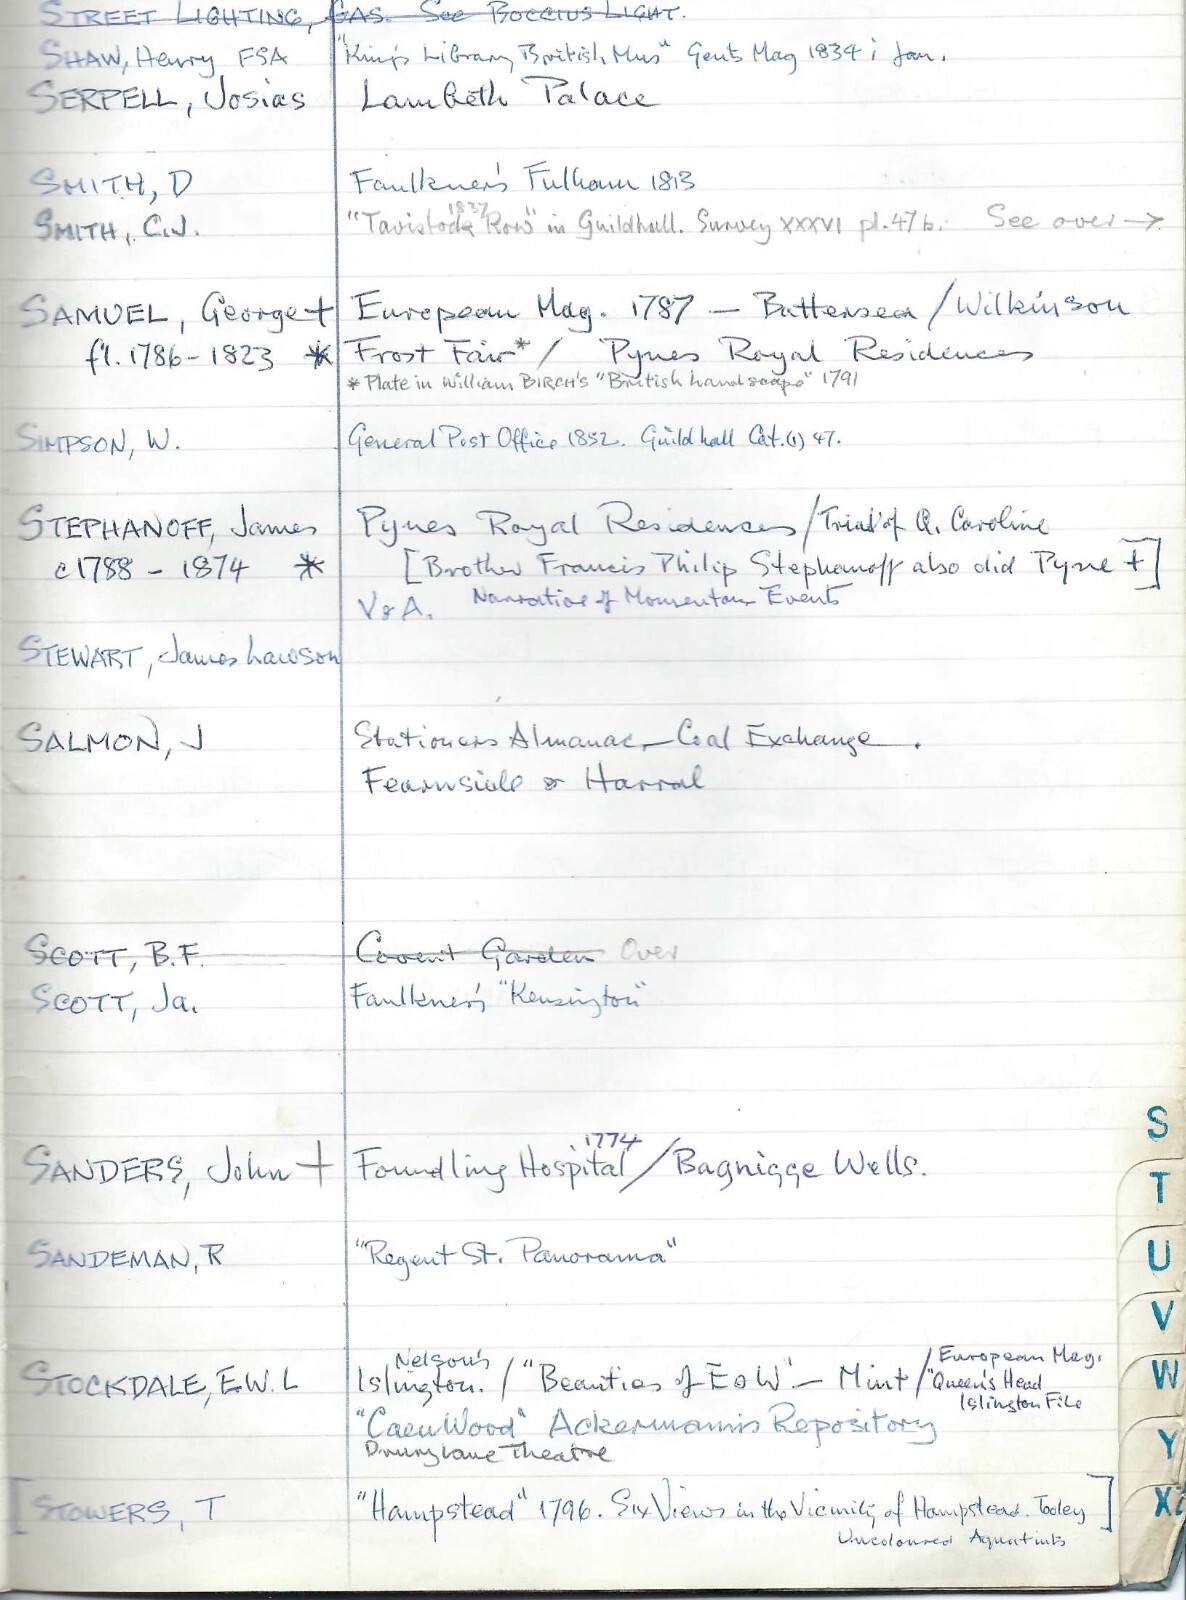 STREET LIGHTING, GAS. See BOCCIUS LIGHT.
SHAW, Henry FSA "King's Library British Mus" Gents Mag 1834 i Jan.
SERPELL, Josias Lambeth Palace
SMITH, D Faulkner's Fulham 1813
1837
SMITH, C.J. "Tavistock Row" in Guildhall. Survey XXXVI pl.47b. See over →
SAMUEL, George + European Mag. 1787 — Battersea / Wilkinson
fl. 1786 - 1823 * Frost Fair* / Pynes Royal Residences
* Plate in William BIRCH'S "British Landscape" 1791
SIMPSON, W. General Post Office 1852. Guildhall Cat.(1) 47.
STEPHANOFF, James Pynes Royal Residences / Trial of Q. Caroline
c1788 - 1874 * [Brother Francis Philip Stephanoff also did Pyne +]
V & A. Narrative of Momentous Events
STEWART, James Lawson
SALMON, J Stationers Almanac — Coal Exchange.
Fearnside & Harral
SCOTT, B.F. Covent Garden Over
SCOTT, Ja. Faulkner's "Kensington"
1774
SANDERS, John + Foundling Hospital / Bagnigge Wells.
SANDEMAN, R "Regent St. Panorama"
Nelson's European Mag.
STOCKDALE, E.W.L Islington. / "Beauties of E & W" — Mint / "Queen's Head
Islington File
"Caen Wood" Ackermann's Repository
Drury Lane Theatre
[STOWERS, T "Hampstead" 1796. Six Views in the Vicinity of Hampstead. Tooley]
Uncoloured Aquatints
S
T
U
V
W
Y